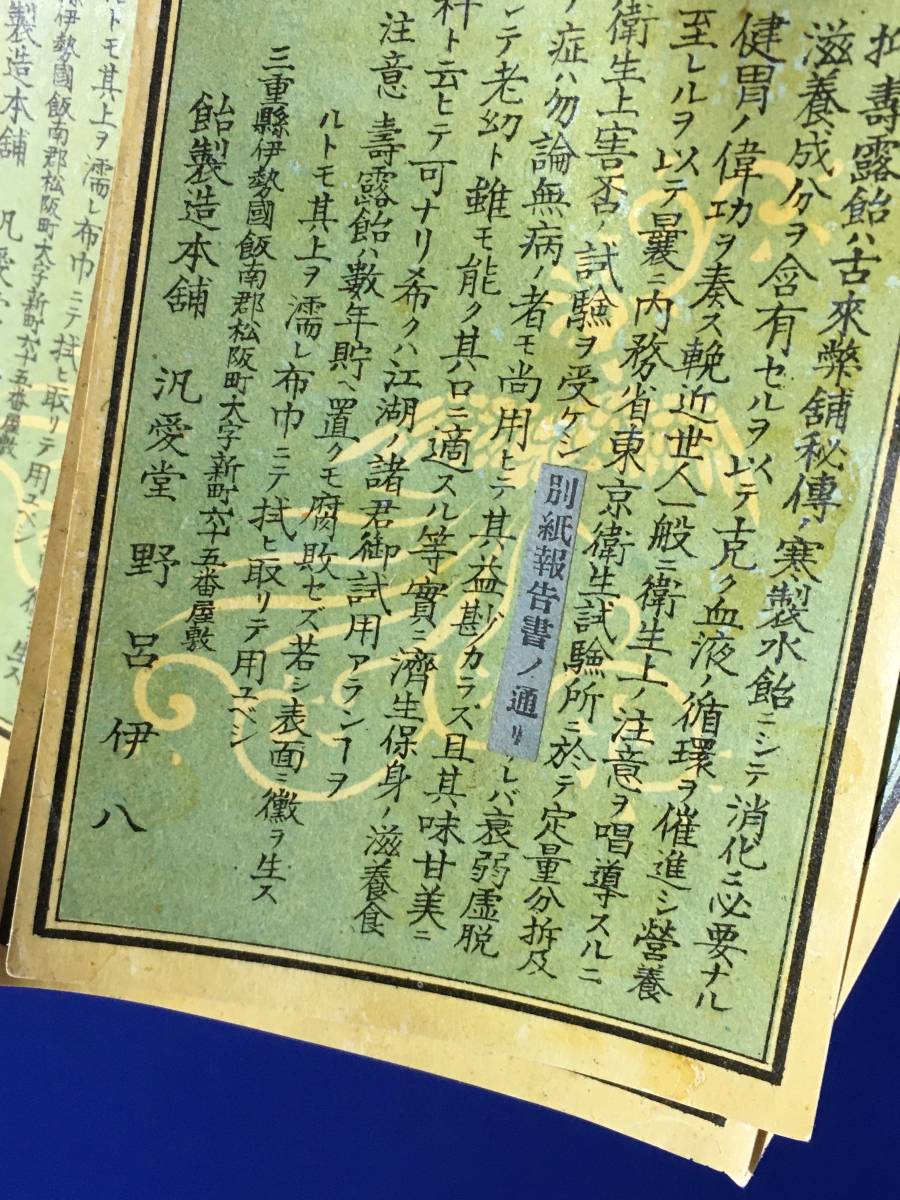 抑壽露飴ハ古來弊舖秘傳ノ寒製水飴ニシテ消化ニ必要ナル
滋養成分ヲ含有セルヲ以テ克ク血液ノ循環ヲ催進シ營養
健胃ノ偉功ヲ奏ス輓近世人一般ニ衛生上ノ注意ヲ唱導スルニ
至レルヲ以テ曩ニ内務省東京衛生試驗所ニ於テ定量分拆及
衛生上害否ノ試驗ヲ受ケシ別紙報告書ノ通リレバ衰弱虚脱
ノ症ハ勿論無病ノ者モ尚用ヒテ其益尠カラズ且其味甘美ニ
シテ老幼ト雖モ能ク其口ニ適スル等實ニ濟生保身ノ滋養食
料ト云ヒテ可ナリ希クハ江湖ノ諸君御試用アランヿヲ
注意 壽露飴ハ數年貯ヘ置クモ腐敗セズ若シ表面ニ黴ヲ生ス
ルトモ其上ヲ濡レ布巾ニテ拭ヒ取リテ用ユベシ
三重縣伊勢國飯南郡松阪町大字新町六十五番屋敷
飴製造本舖 汎愛堂 野呂伊八
ルトモ其上ヲ濡レ布巾ニテ拭ヒ取リテ用ユベシ
伊勢國飯南郡松阪町大字新町六十五番屋敷
製造本舖 汎愛
生ス